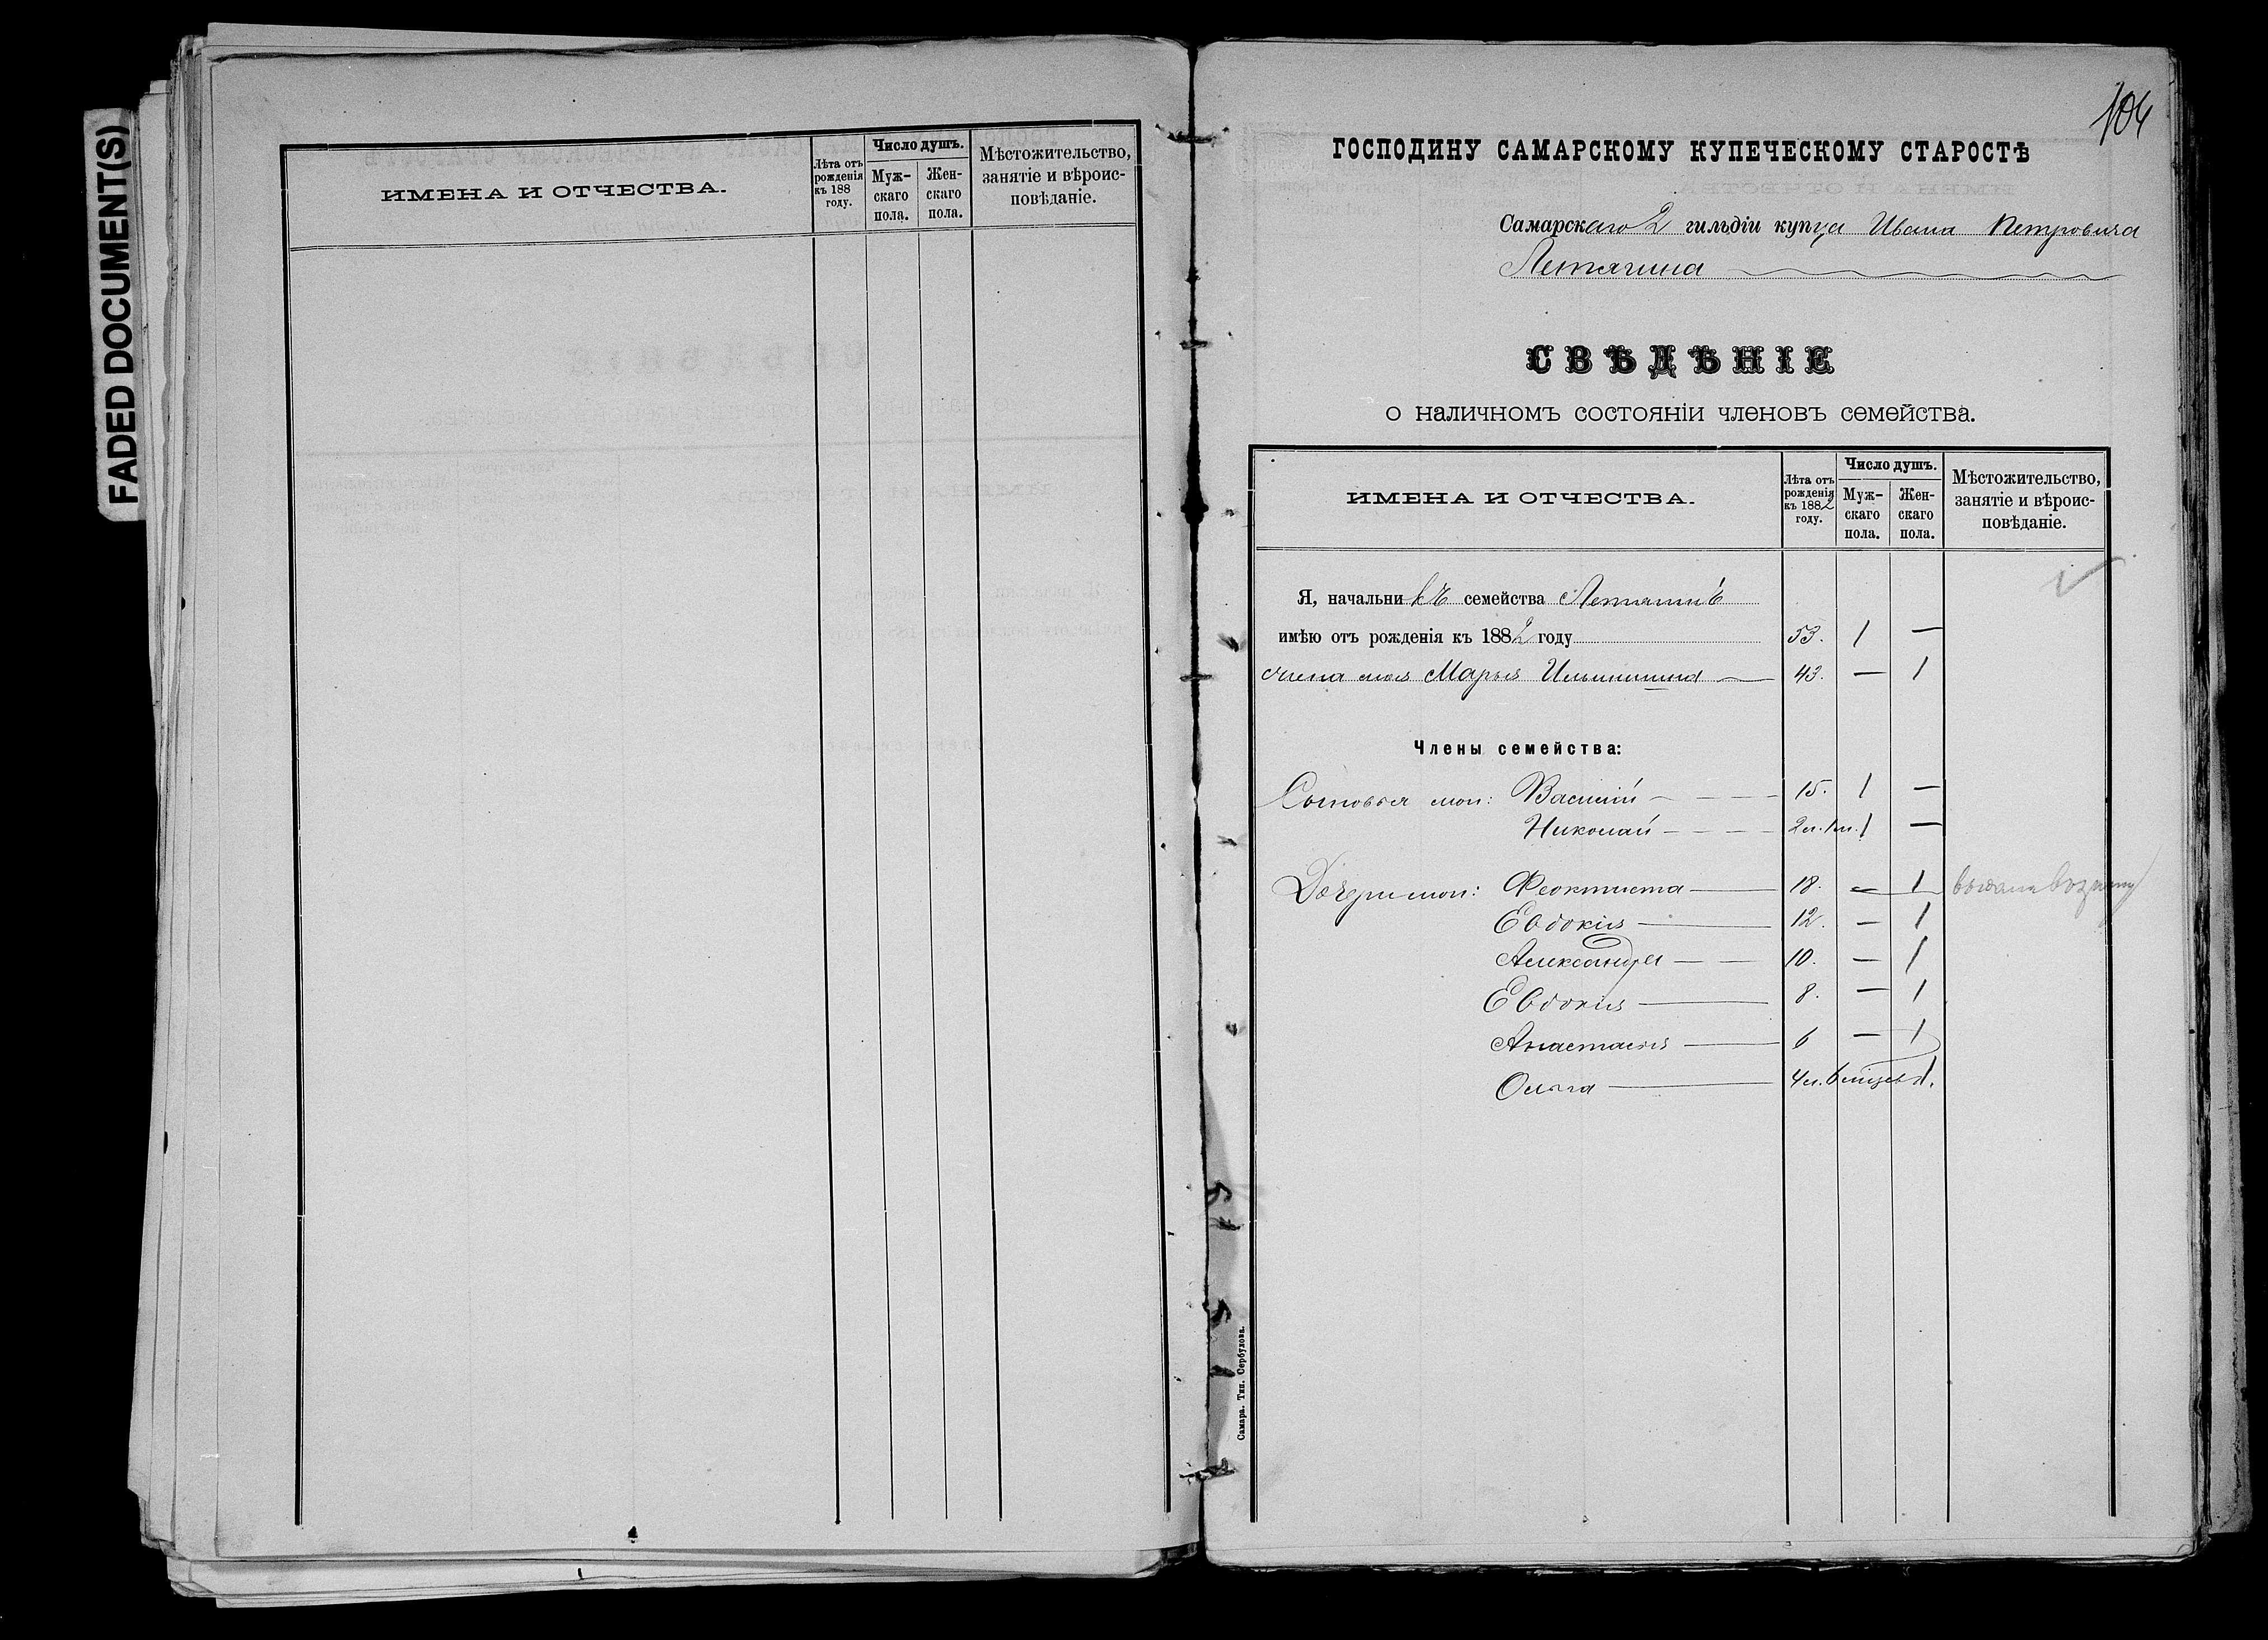 FADED DOCUMENT(S)
ИМЕНА И ОТЧЕСТВА.
Лѣта отъ рожденія къ 188 году.
Число душъ.
Мужскаго пола.
Женскаго пола.
Мѣстожительство, занятіе и вѣроисповѣданіе.
104
ГОСПОДИНУ САМАРСКОМУ КУПЕЧЕСКОМУ СТАРОСТѢ
Самарскаго 2 гильдіи купца Ивана Петровича
Летягина
СВѢДѢНІЕ
о наличномъ состояніи членовъ семейства.
ИМЕНА И ОТЧЕСТВА.
Лѣта отъ рожденія къ 1882 году.
Число душъ.
Мужскаго пола.
Женскаго пола.
Мѣстожительство, занятіе и вѣроисповѣданіе.
Я, начальникъ семейства Летягинъ
имѣю отъ рожденія къ 1882 году 53. 1 —
жена моя Марья Ильинишна — 43. — 1
Члены семейства:
Сыновья мои: Василій — 15. 1 —
Николай — 2 л. 1 м. 1 —
Дочери мои: Феоктиста — 18. — 1
Евдокія — 12. — 1
Александра — 10. — 1
Евдокія — 8. — 1
Анастасія — 6 — 1
Ольга — 4 л. 6 мѣсяцевъ 1.
Самара. Тип. Сербулова.